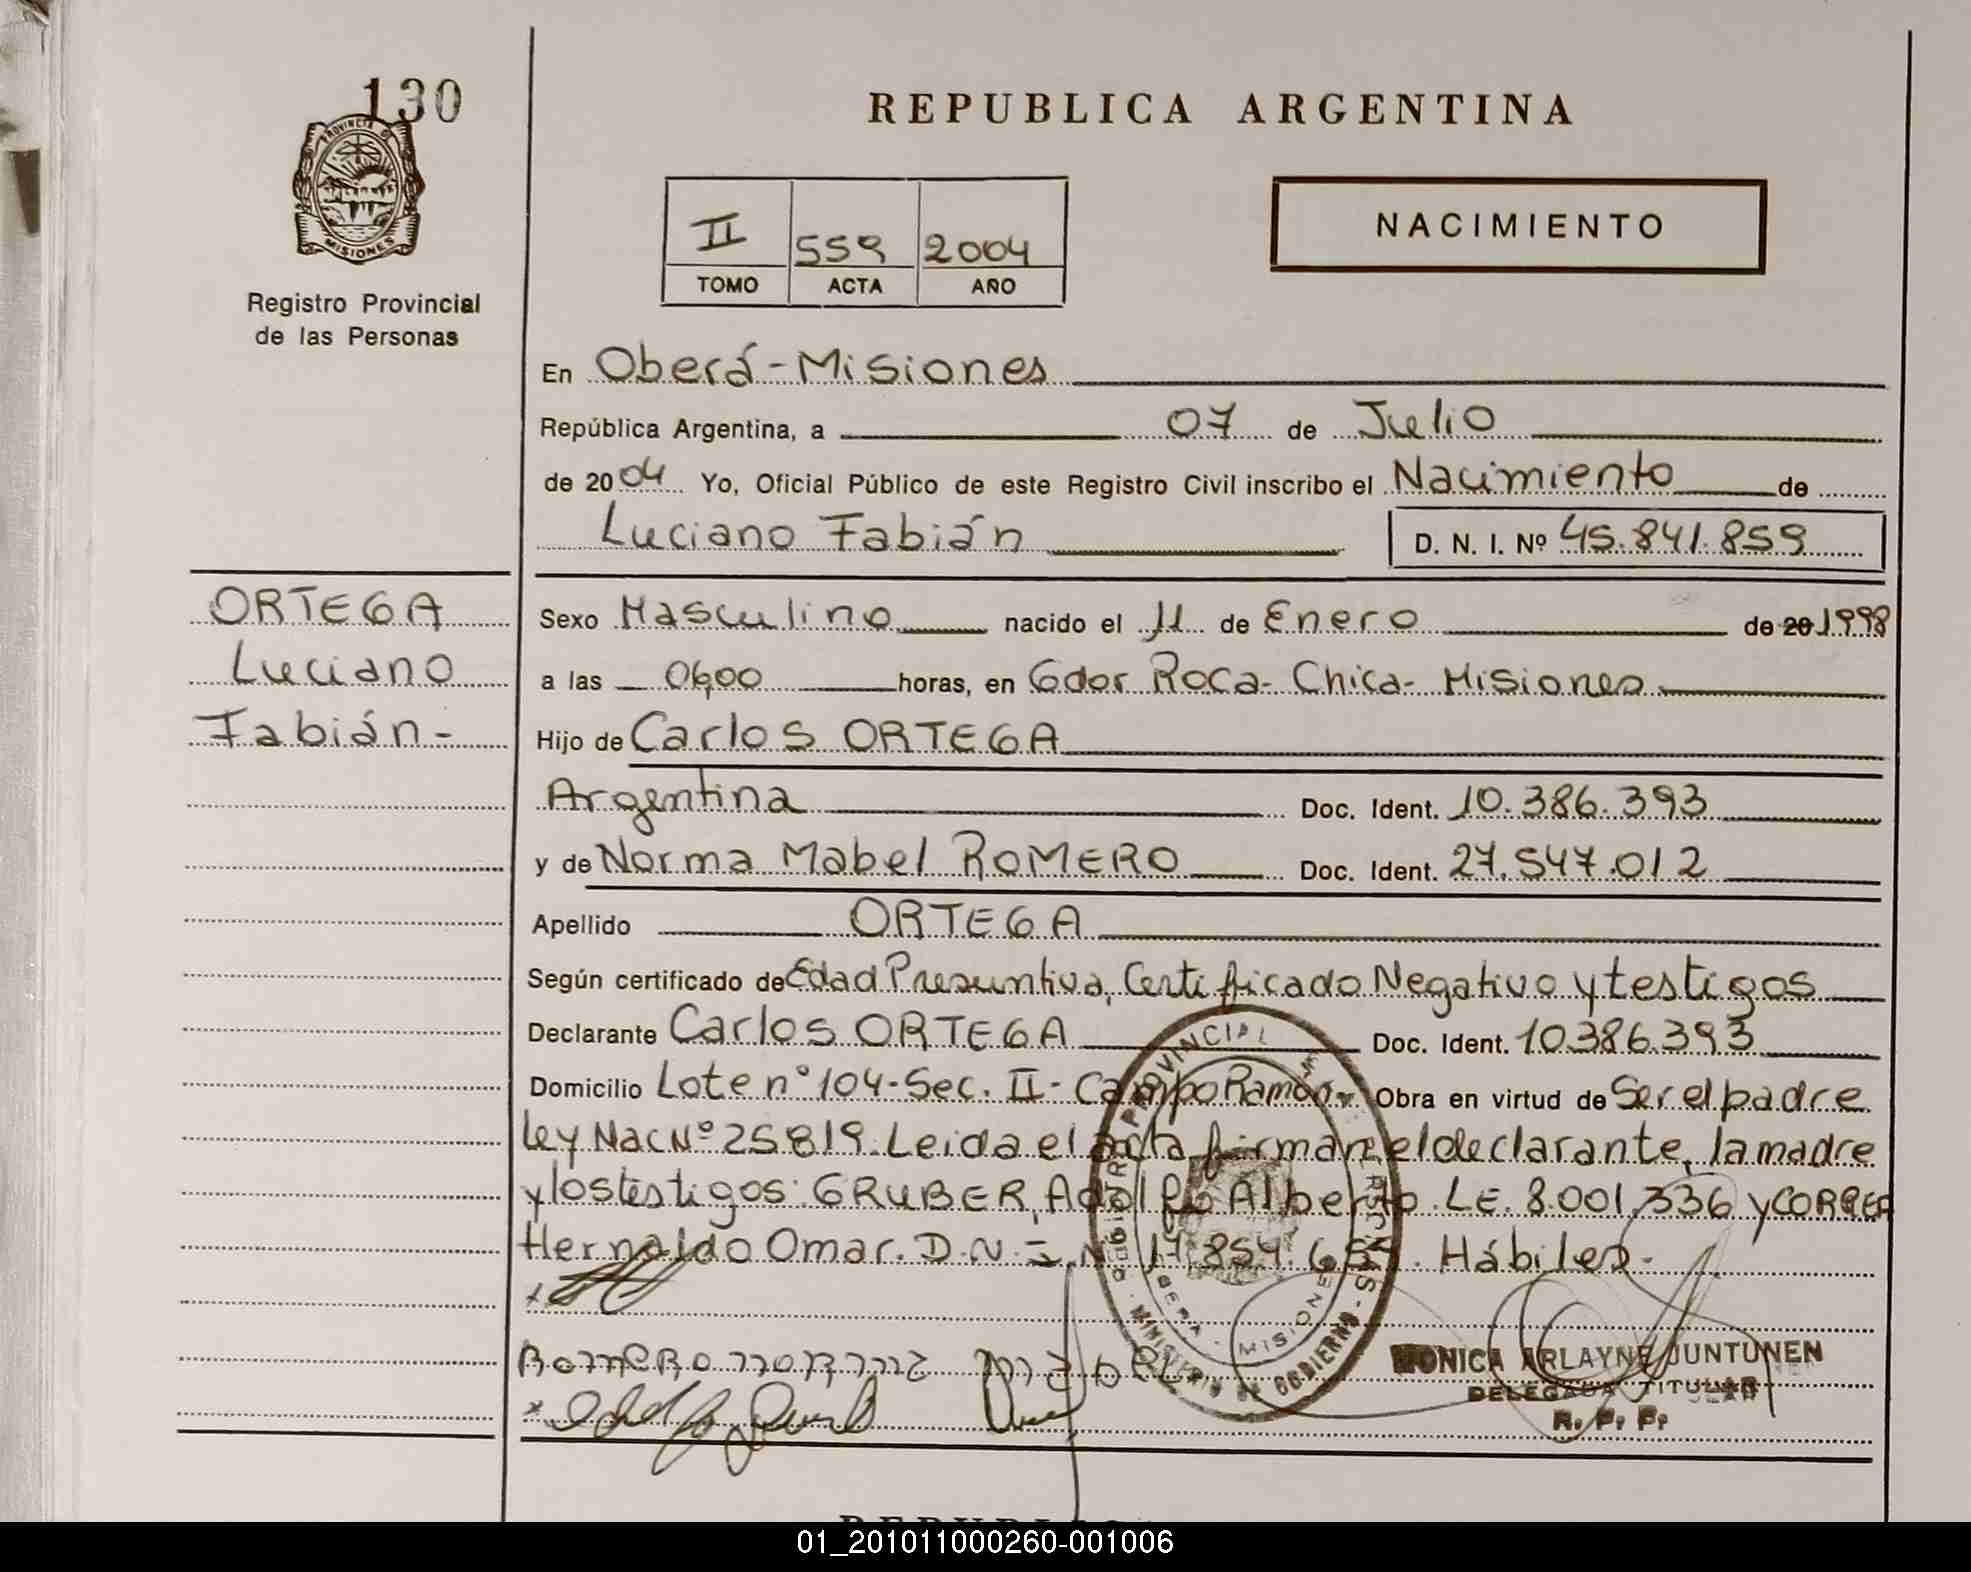 130
PROVINCIA DE
MISIONES
Registro Provincial
de las Personas
REPUBLICA ARGENTINA
NACIMIENTO
II 559 2004
TOMO ACTA AÑO
En Oberá - Misiones
República Argentina, a 07 de Julio
de 2004 Yo, Oficial Público de este Registro Civil inscribo el Nacimiento de
Luciano Fabián D. N. I. Nº 45.841.859
ORTEGA
Luciano
Fabián -
Sexo Masculino nacido el 11 de Enero de 20 1998
a las 06,00 horas, en Gdor Roca - Chica - Misiones
Hijo de Carlos ORTEGA
Argentina Doc. Ident. 10.386.393
y de Norma Mabel ROMERO Doc. Ident. 27.547.012
Apellido ORTEGA
Según certificado de Edad Presuntiva, Certificado Negativo y testigos
Declarante Carlos ORTEGA Doc. Ident. 10386.393
Domicilio Lote nº 104 - Sec. II - Campo Ramón. Obra en virtud de Ser el padre
Ley Nac Nº 25819. Leida el acta firman el declarante, la madre
y los testigos: GRUBER, Adolfo Alberto. L.E. 8.001.336 y CORREA
Hernaldo Omar. D.N.I. Nº 17.854. Hábiles -
PROVINCIAL
MISIONES
MINISTERIO DE GOBIERNO -
MONICA ARLAYNE JUNTUNEN
DELEGADA TITULAR
R. P. P.
REPUBLICA
01_201011000260-001006